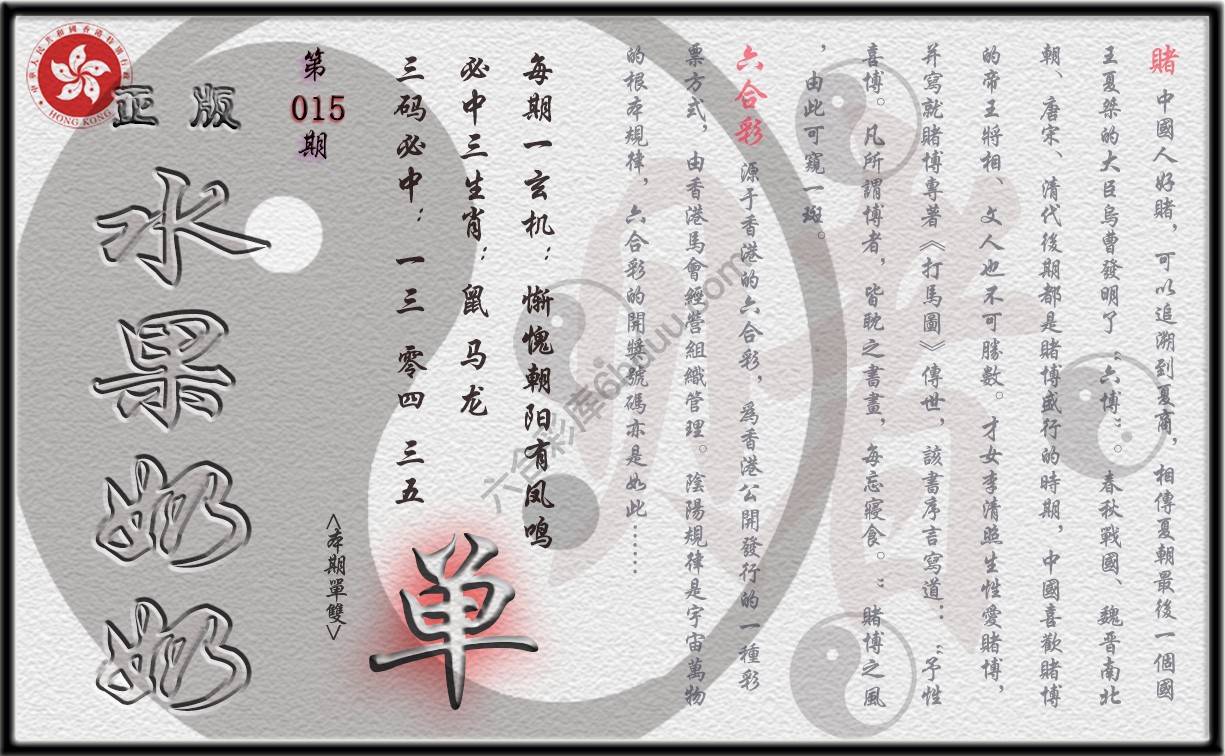 賭 中國人好賭，可以追溯到夏商，相傳夏朝最後一個國
王夏桀的大臣烏曹發明了“六博”。春秋戰國、魏晋南北
朝、唐宋、清代後期都是賭博盛行的時期，中國喜歡賭博
的帝王將相、文人也不可勝數。才女李清照生性愛賭博，
并寫就賭博專著《打馬圖》傳世，該書序言寫道：“予性
喜博。凡所謂博者，皆耽之書畫，每忘寢食。”賭博之風
，由此可窺一斑。
六合彩 源于香港的六合彩，為香港公開發行的一種彩
票方式，由香港馬會經營組織管理。陰陽規律是宇宙萬物
的根本規律，六合彩的開獎號碼亦是如此……
每期一玄机：惭愧朝阳有凤鸣
必中三生肖：鼠马龙
三码必中：一三 零四 三五
<本期單雙>
单
第
015
期
正版
水果奶奶
中華人民共和國香港特別行政區
HONG KONG